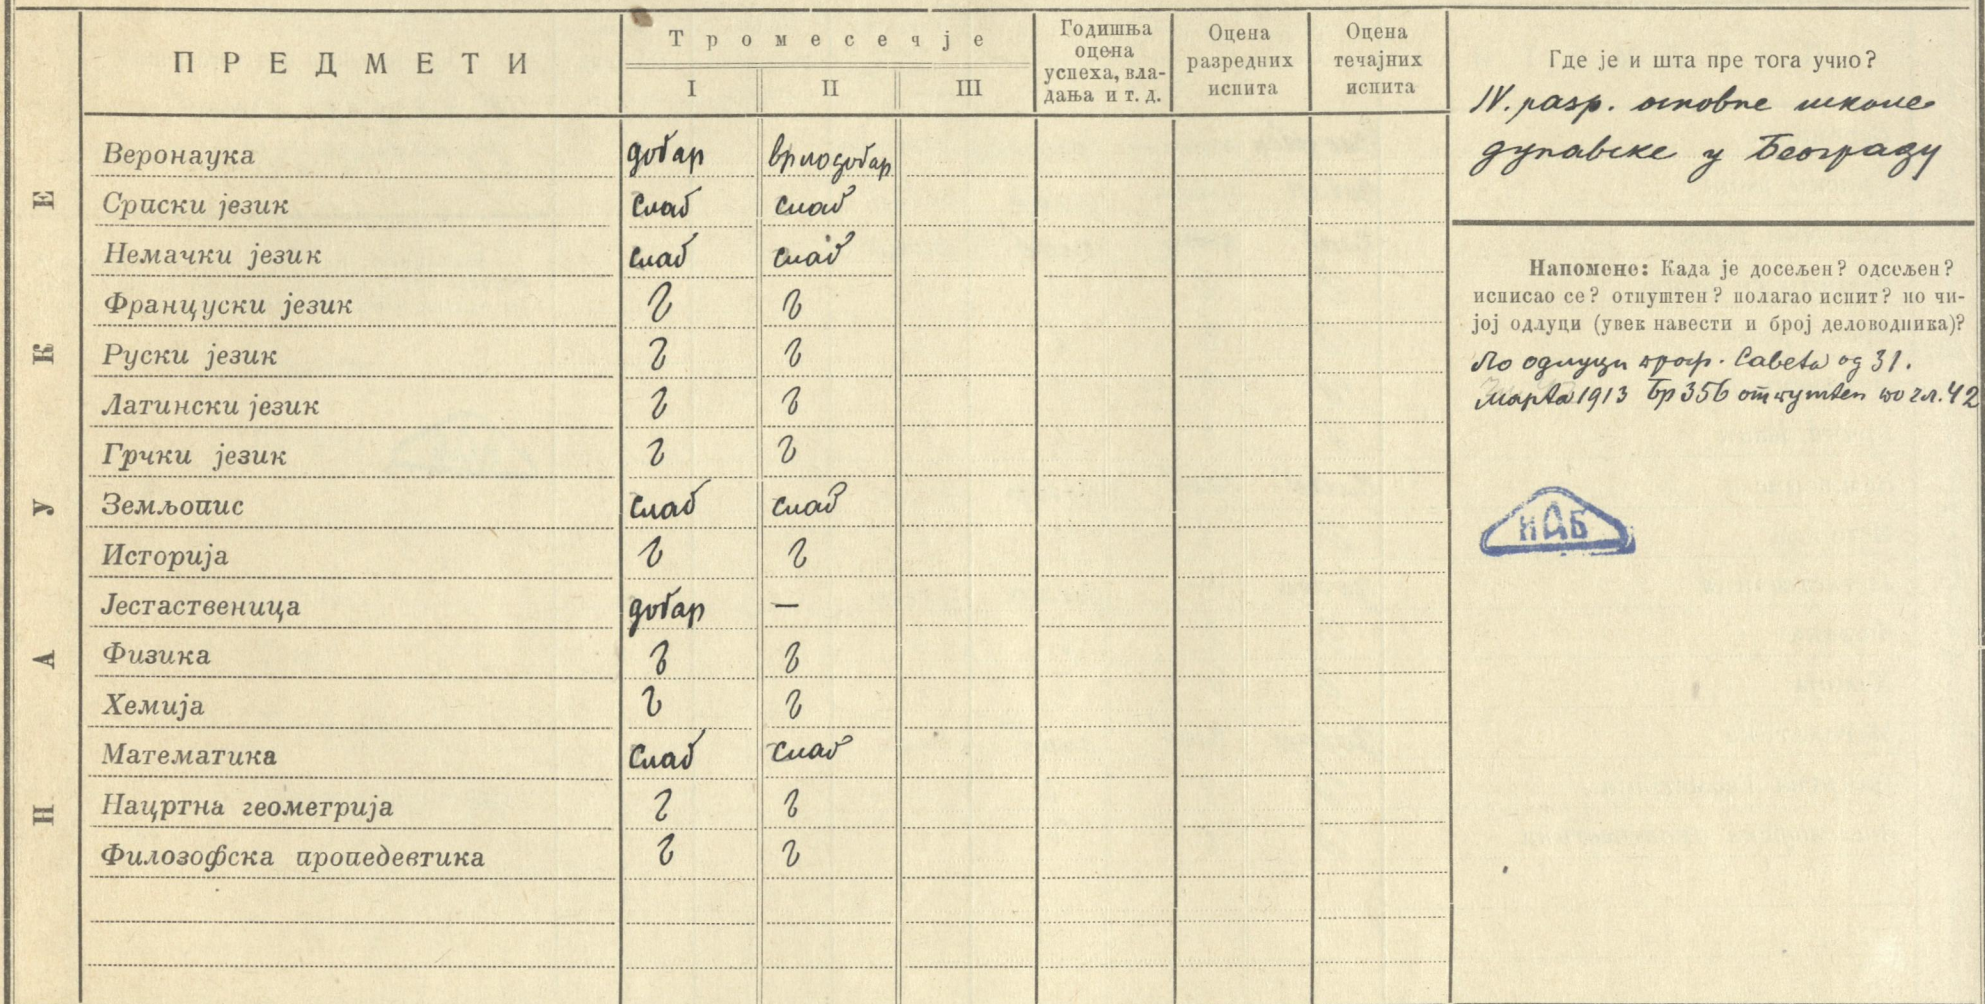 НАУКЕ
ПРЕДМЕТИ
Тромесечје
I II III
Годишња
оцена
успеха, вла-
дања и т. д.
Оцена
разредних
испита
Оцена
течајних
испита
Веронаука добар врло добар
Српски језик слаб слаб
Немачки језик слаб слаб
Француски језик
Руски језик
Латински језик
Грчки језик
Земљопис слаб слаб
Историја
Јестаственица добар —
Физика
Хемија
Математика слаб слаб
Нацртна геометрија
Филозофска пропедевтика
Где је и шта пре тога учио?
IV. разр. основне школе
дунавске у Београду
Напомене: Када је досељен? одсељен?
исписао се? отпуштен? полагао испит? по чи-
јој одлуци (увек навести и број деловодника)?
По одлуци проф. Савета од 31.
Марта 1913 Бр 356 отпуштен по чл. 42
ИАБ